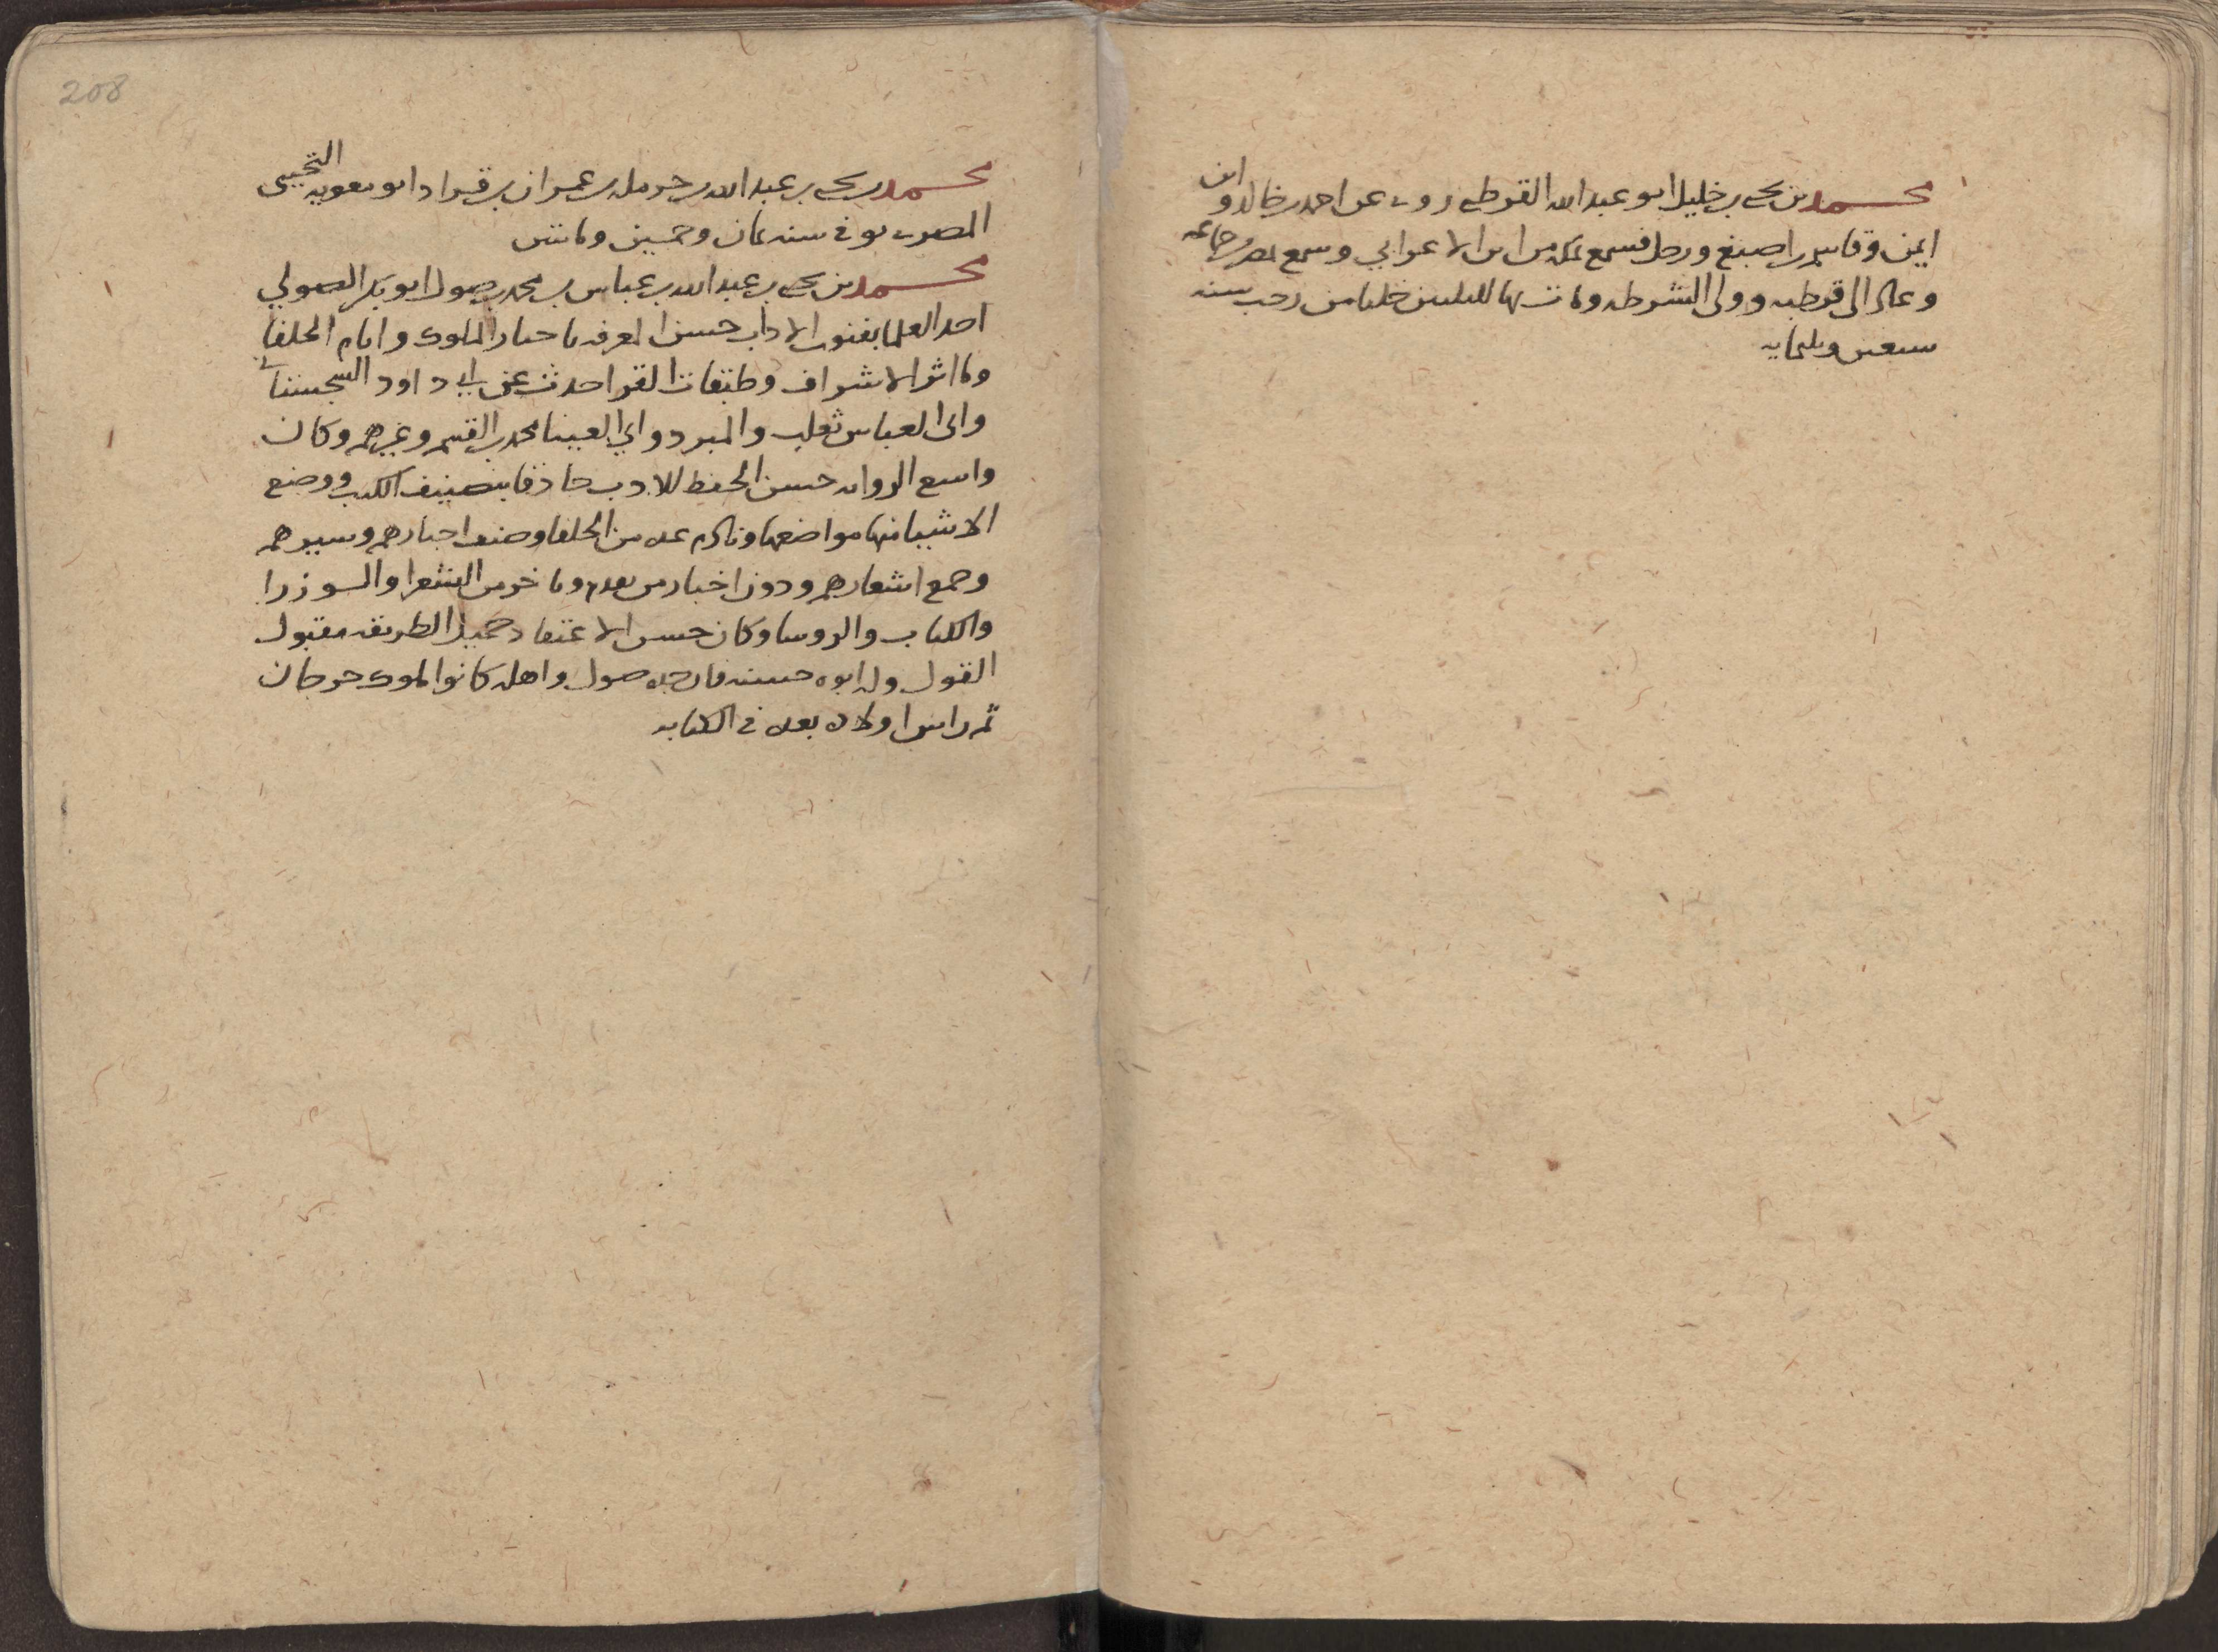 محمد بن يحيى بن خليل ابو عبد الله القرطبي روى عن احمد بن خالد وابن
ايمن وقاسم بن اصبغ ورحل فسمع بمكة من ابن الاعرابي وسمع بمصر جماعة
وعاد الى قرطبه وولى الشرطه ومات بها لليلتين خلتا من رجب سنه
سبعين وثلثمايه
208
محمد بن يحيى بن عبد الله بن حرمله بن عمران بن قراد ابو معويه التجيبي
المصرى توفي سنه ثمان وخمسين ومائتين
محمد بن يحيى بن عبد الله بن عباس بن محمد بن صول ابو بكر الصولي
احد العلما بفنون الاداب حسن المعرفه باخبار الملوك وايام الخلفا
وماثر الاشراف وطبقات القرا حدث عن ابي داود السجستاني
وابى العباس ثعلب والمبرد وابي العينا محمد بن القسم وغيرهم وكان
واسع الروايه حسن الحفظ للادب حاذقا بتصنيف الكتب ووضع
الاشيا منها مواضعها ونادم عده من الخلفا وصنف اخبارهم وسيرهم
وجمع اشعارهم ودون اخبار من تقدم وتاخر من الشعرا والوزرا
والكتاب والروسا وكان حسن الاعتقاد جميل الطريقه مقبول
القول وله ابوه حسنه فان جده صول واهله كانوا ملوك جرجان
ثم راس اولاده بعده في الكتابه